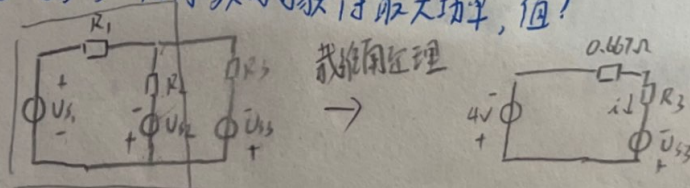 得最大功率,值?
R₁
+
Us₁
-
R₂
-
Us₂
+
R₃
-
Us₃
+
戴维南定理
→
0.667Ω
4V
-
+
i↓
R₃
-
Us₃
+